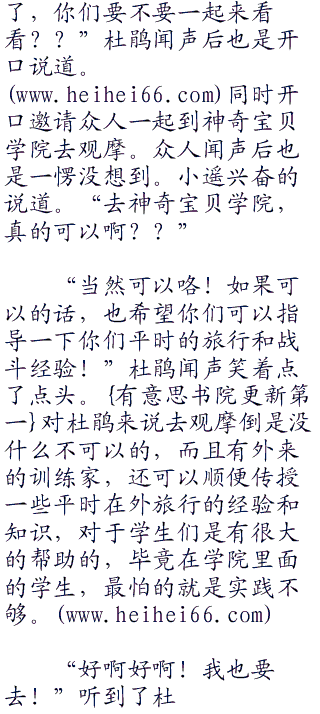 了，你们要不要一起来看
看？？”杜鹃闻声后也是开
口说道。
(www.heihei66.com)同时开
口邀请众人一起到神奇宝贝
学院去观摩。众人闻声后也
是一愣没想到。小遥兴奋的
说道。“去神奇宝贝学院，
真的可以啊？？”
“当然可以咯！如果可
以的话，也希望你们可以指
导一下你们平时的旅行和战
斗经验！”杜鹃闻声笑着点
了点头。{有意思书院更新第
一}对杜鹃来说去观摩倒是没
什么不可以的，而且有外来
的训练家，还可以顺便传授
一些平时在外旅行的经验和
知识，对于学生们是有很大
的帮助的，毕竟在学院里面
的学生，最怕的就是实践不
够。(www.heihei66.com)
“好啊好啊！我也要
去！”听到了杜